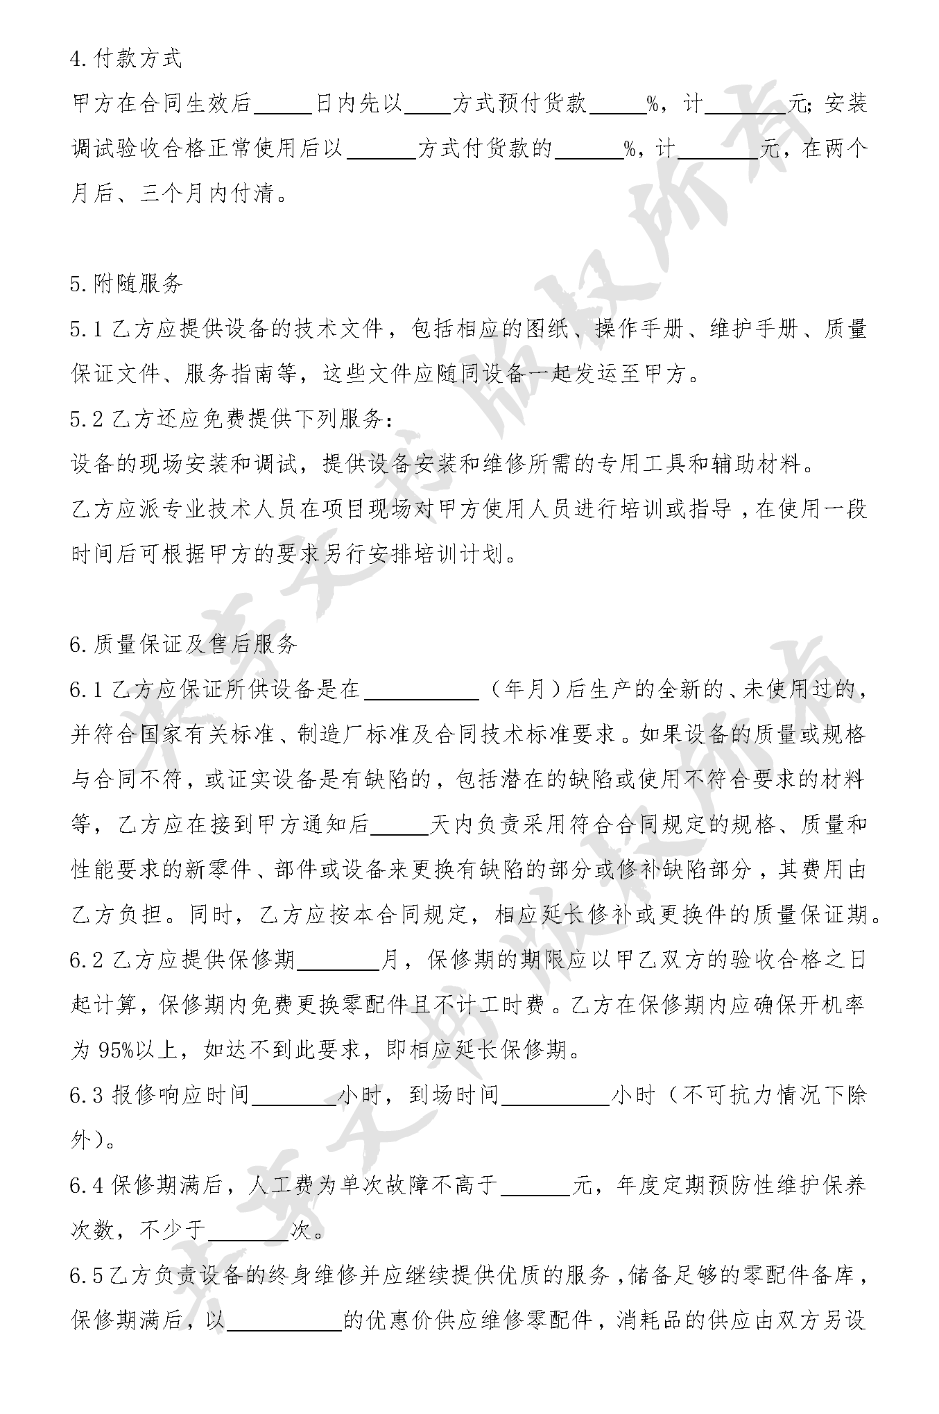 4.付款方式
甲方在合同生效后_____日内先以____方式预付货款_____%，计_______元；安装
调试验收合格正常使用后以______方式付货款的______%，计_______元，在两个
月后、三个月内付清。
5.附随服务
5.1 乙方应提供设备的技术文件，包括相应的图纸、操作手册、维护手册、质量
保证文件、服务指南等，这些文件应随同设备一起发运至甲方。
5.2 乙方还应免费提供下列服务：
设备的现场安装和调试，提供设备安装和维修所需的专用工具和辅助材料。
乙方应派专业技术人员在项目现场对甲方使用人员进行培训或指导，在使用一段
时间后可根据甲方的要求另行安排培训计划。
6.质量保证及售后服务
6.1 乙方应保证所供设备是在__________（年月）后生产的全新的、未使用过的，
并符合国家有关标准、制造厂标准及合同技术标准要求。如果设备的质量或规格
与合同不符，或证实设备是有缺陷的，包括潜在的缺陷或使用不符合要求的材料
等，乙方应在接到甲方通知后_____天内负责采用符合合同规定的规格、质量和
性能要求的新零件、部件或设备来更换有缺陷的部分或修补缺陷部分，其费用由
乙方负担。同时，乙方应按本合同规定，相应延长修补或更换件的质量保证期。
6.2 乙方应提供保修期_______月，保修期的期限应以甲乙双方的验收合格之日
起计算，保修期内免费更换零配件且不计工时费。乙方在保修期内应确保开机率
为 95%以上，如达不到此要求，即相应延长保修期。
6.3 报修响应时间_______小时，到场时间_________小时（不可抗力情况下除
外）。
6.4 保修期满后，人工费为单次故障不高于______元，年度定期预防性维护保养
次数，不少于_______次。
6.5 乙方负责设备的终身维修并应继续提供优质的服务，储备足够的零配件备库，
保修期满后，以__________的优惠价供应维修零配件，消耗品的供应由双方另设
米芽文书 版权所有
米芽文书 版权所有